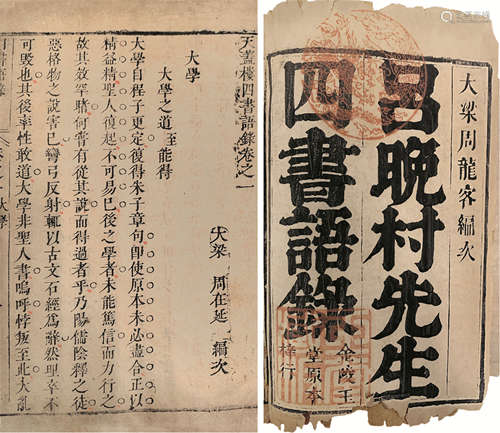 大梁周龍客編次
呂晚村先生
四書語錄
金陵玉
堂原本
梓行
天蓋樓四書語錄卷之一
大梁 周在延 編次
大學
大學之道至能得
大學自程子更定復得朱子章句即使原本未必盡合正以
精益精聖人復起不可易已後之學者未能篤信而力行之
故其效罕睹何嘗有從其說而得過者乎乃陽儒陰釋之徒
惡格物之說害已彎弓反射輒以古文石經爲辭然聖幸不
可毀也其後率性敢道大學非聖人書嗚呼悖叛至此大亂